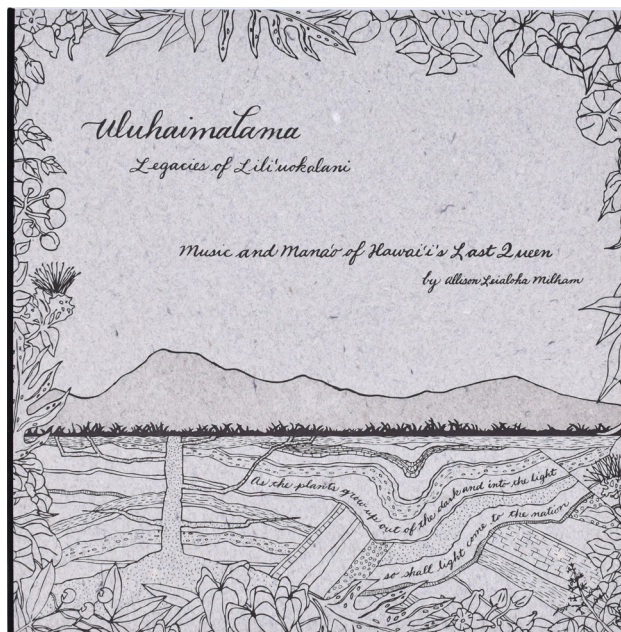 Uluhaimalama
Legacies of Lili'uokalani
Music and Mana'o of Hawai'i's Last Queen
by Allison Leialoha Milham
As the plants grow up out of the dark and into the light
so shall light come to the nation